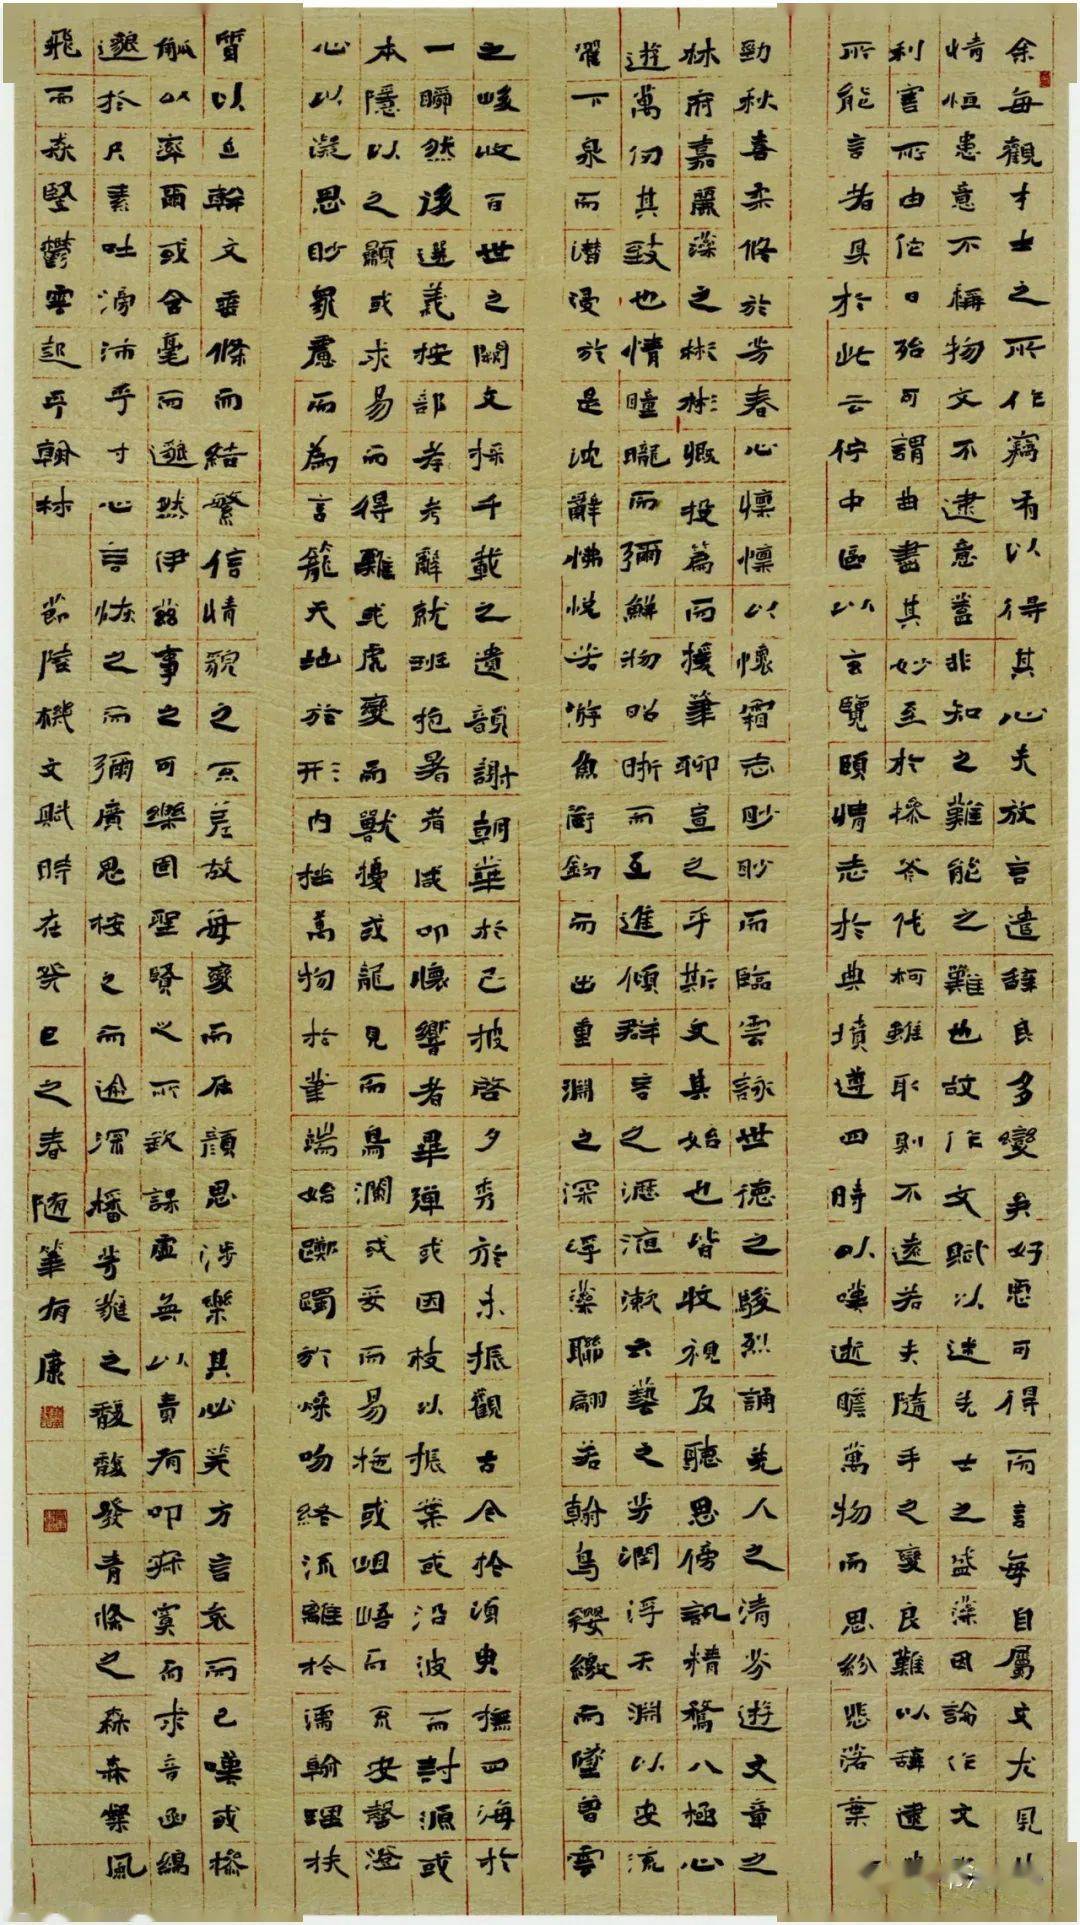 余每觀才士之所作竊有以得其心夫放言遣辭良多變矣好惡可得而言每自屬文尤見
情恒患意不稱物文不逮意蓋非知之難能之難也故作文賦以述先士之盛藻因論作文
利害所由佗日殆可謂曲盡其妙至於操斧伐柯雖取則不遠若夫隨手之變良難以辭逮
所能言者具於此云佇中區以玄覽頤情志於典墳遵四時以嘆逝瞻萬物而思紛悲落葉
勁秋喜柔條於芳春心懍懍以懷霜志眇眇而臨雲詠世德之駿烈誦先人之清芬遊文章之
林府嘉麗藻之彬彬慨投篇而援筆聊宣之乎斯文其始也皆收視反聽思傍訊精騖八極心
遊萬仞其致也情曈曨而彌鮮物昭晰而互進傾群言之瀝液漱六藝之芳潤浮天淵以安流
濯下泉而潛浸於是沈辭怫悅若游魚銜鈎而出重淵之深浮藻聯翩若翰鳥纓繳而墜曾雲
之峻收百世之闕文採千載之遺韻謝朝華於已披啓夕秀於未振觀古今於須臾撫四海於
一瞬然後選義按部孝考辭就班抱暑者咸叩懷響者畢彈或因枝以振葉或沿波而討源或
本隱以之顯或求易而得難或虎變而獸擾或龍見而鳥瀾或妥而易施或岨峿而不安罄澄
心以凝思眇眾慮而為言籠天地於形內挫萬物於筆端始躑躅於燥吻終流離於濡翰理扶
質以立幹文垂條而結繁信情貌之不差故每變而在顏思涉樂其必笑方言哀而已嘆或操
觚以率爾或含毫而邈然伊茲事之可樂固聖賢之所欽課虛無以責有叩寂寞而求音函綿
邈於尺素吐滂沛乎寸心言恢之而彌廣思按之而逾深播芳蕤之馥馥發青條之森森粲風
飛而猋豎鬱雲起乎翰林 節陸機文賦時在癸巳之春隨筆有康